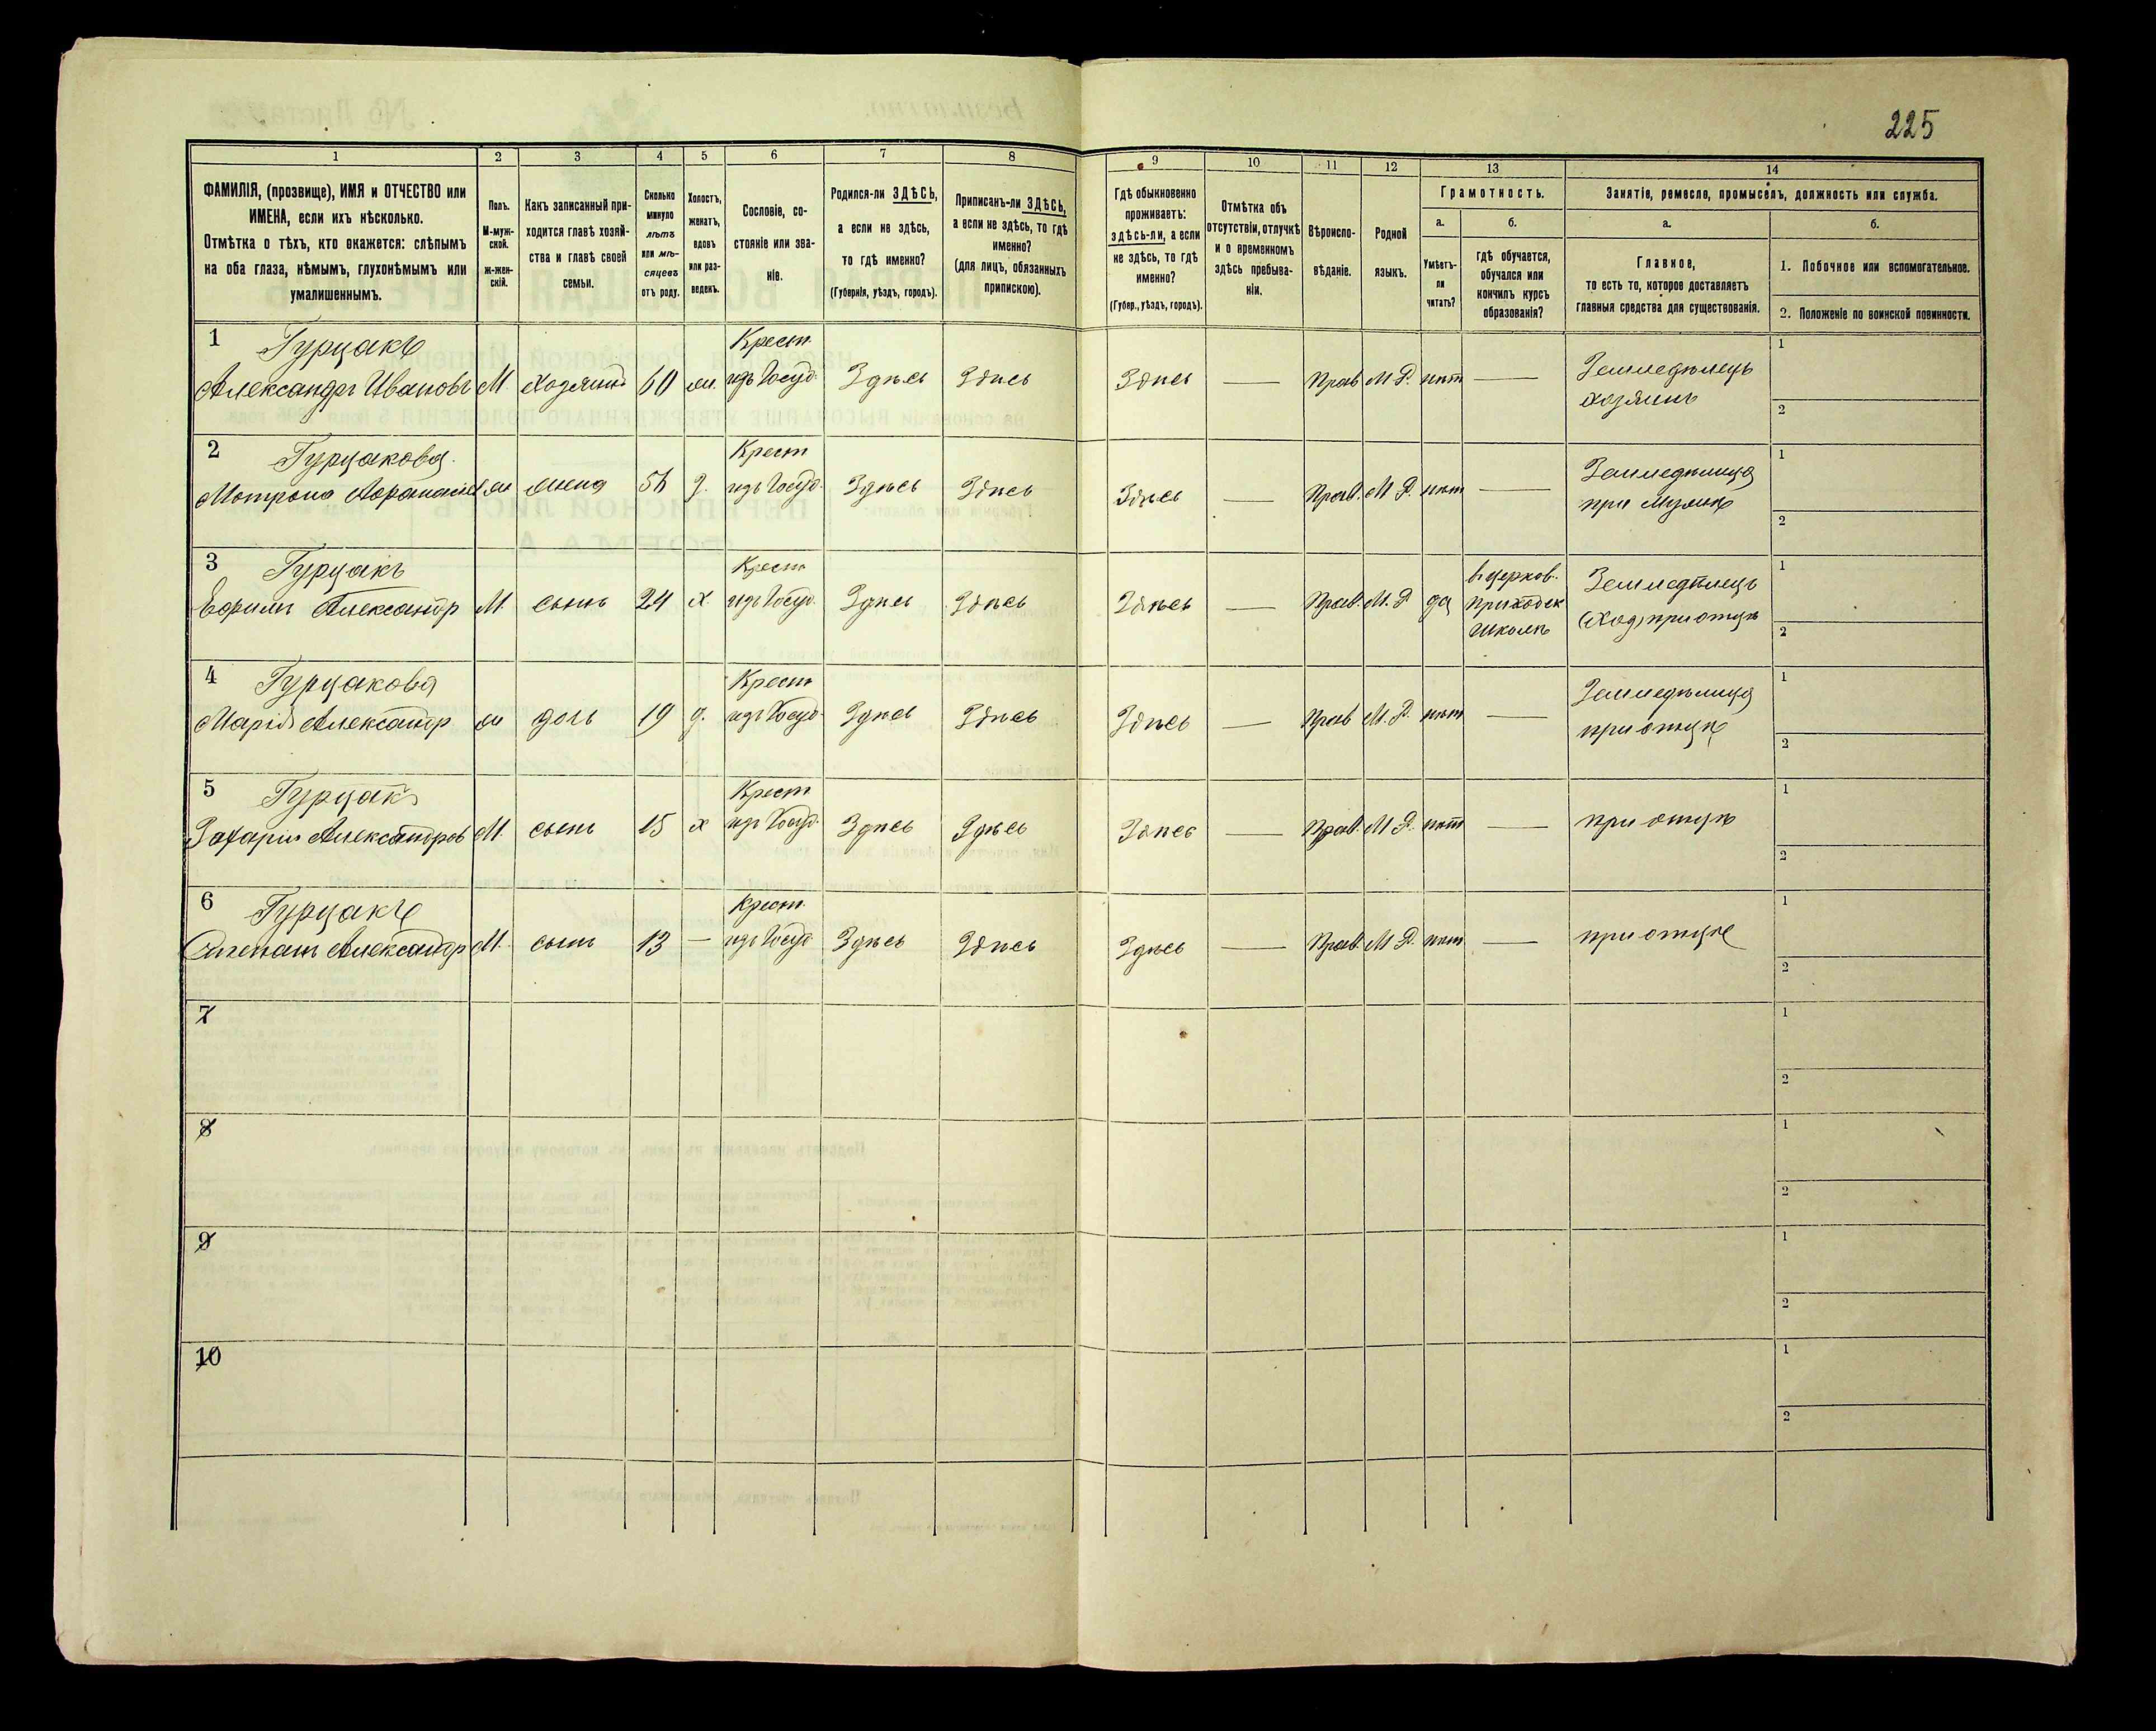 225
1 2 3 4 5 6 7 8 9 10 11 12 13 14
ФАМИЛІЯ, (прозвище), ИМЯ и ОТЧЕСТВО или
ИМЕНА, если ихъ нѣсколько.
Отмѣтка о тѣхъ, кто окажется: слѣпымъ
на оба глаза, нѣмымъ, глухонѣмымъ или
умалишеннымъ.
Полъ.
М-муж-
ской.
ж-жен-
скій.
Какъ записанный при-
ходится главѣ хозяй-
ства и главѣ своей
семьи.
Сколько
минуло
лѣтъ
или мѣ-
сяцевъ
отъ роду.
Холостъ,
женатъ,
вдовъ
или раз-
веденъ.
Сословіе, со-
стояніе или зва-
ніе.
Родился-ли ЗДѢСЬ,
а если не здѣсь,
то гдѣ именно?
(Губернія, уѣздъ, городъ).
Приписанъ-ли ЗДѢСЬ,
а если не здѣсь, то гдѣ
именно?
(для лицъ, обязанныхъ
припискою).
Гдѣ обыкновенно
проживаетъ:
здѣсь-ли, а если
не здѣсь, то гдѣ
именно?
(Губер., уѣздъ, городъ).
Отмѣтка объ
отсутствіи, отлучкѣ
и о временномъ
здѣсь пребыва-
ніи.
Вѣроиспо-
вѣданіе.
Родной
языкъ.
Грамотность.
а.
Умѣетъ-
ли
читать?
б.
гдѣ обучается,
обучался или
кончилъ курсъ
образованія?
Занятіе, ремесло, промыселъ, должность или служба.
а.
Главное,
то есть то, которое доставляетъ
главныя средства для существованія.
б.
1. Побочное или вспомогательное.
2. Положеніе по воинской повинности.
1 Гурцакъ Крест 1
Александръ Ивановъ М. хозяинъ 60 жи. изъ Госуд. Здѣсь Здѣсь Здѣсь — Прав М. Р. нѣт — Земледѣлецъ
хозяинъ 2
2 Гурцакова Крест 1
Мотрона ж жена 9. изъ Госуд. Здѣсь Здѣсь Здѣсь — Прав. М. Р. нѣт — Земледѣлица
при Мужѣ 2
3 Гурцакъ Крест в церков. 1
Ефимъ Александр М. сынъ 24 х изъ Госуд. Здѣсь Здѣсь Здѣсь — Прав. М. Р. да приходск Земледѣлецъ
школѣ при отцѣ 2
4 Гурцакова Крест 1
Марія Александр ж дочь 19 9. изъ Госуд. Здѣсь Здѣсь Здѣсь — Прав М. Р. нѣт — Земледѣлица
при отцѣ 2
5 Гурцакъ Крест 1
Захарій Александров М. сынъ 15 х изъ Госуд. Здѣсь Здѣсь Здѣсь — Прав. М. Р. нѣт — при отцѣ
2
6 Гурцакъ Крест. 1
Александр М. сынъ 13 — изъ Госуд Здѣсь Здѣсь Здѣсь — Прав. М. Р. нѣт — при отцѣ
2
7 1
2
8 1
2
9 1
2
10 1
2